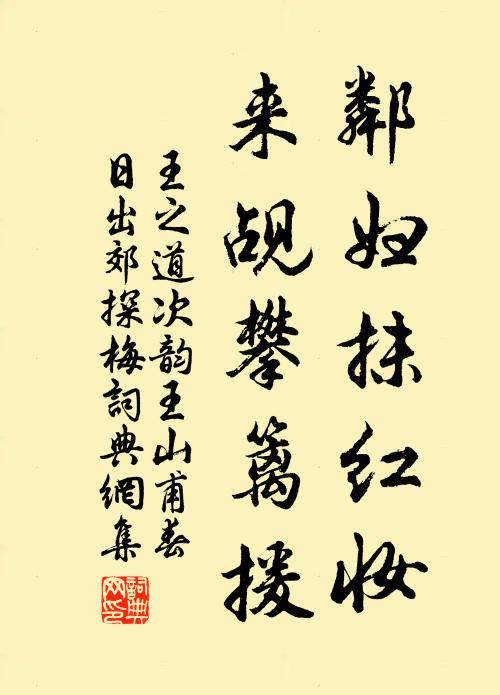 鄰妇抹红妆
来觇攀篱援
王之道次韵王山甫春
日出郊探梅詞典網集
詞典網印